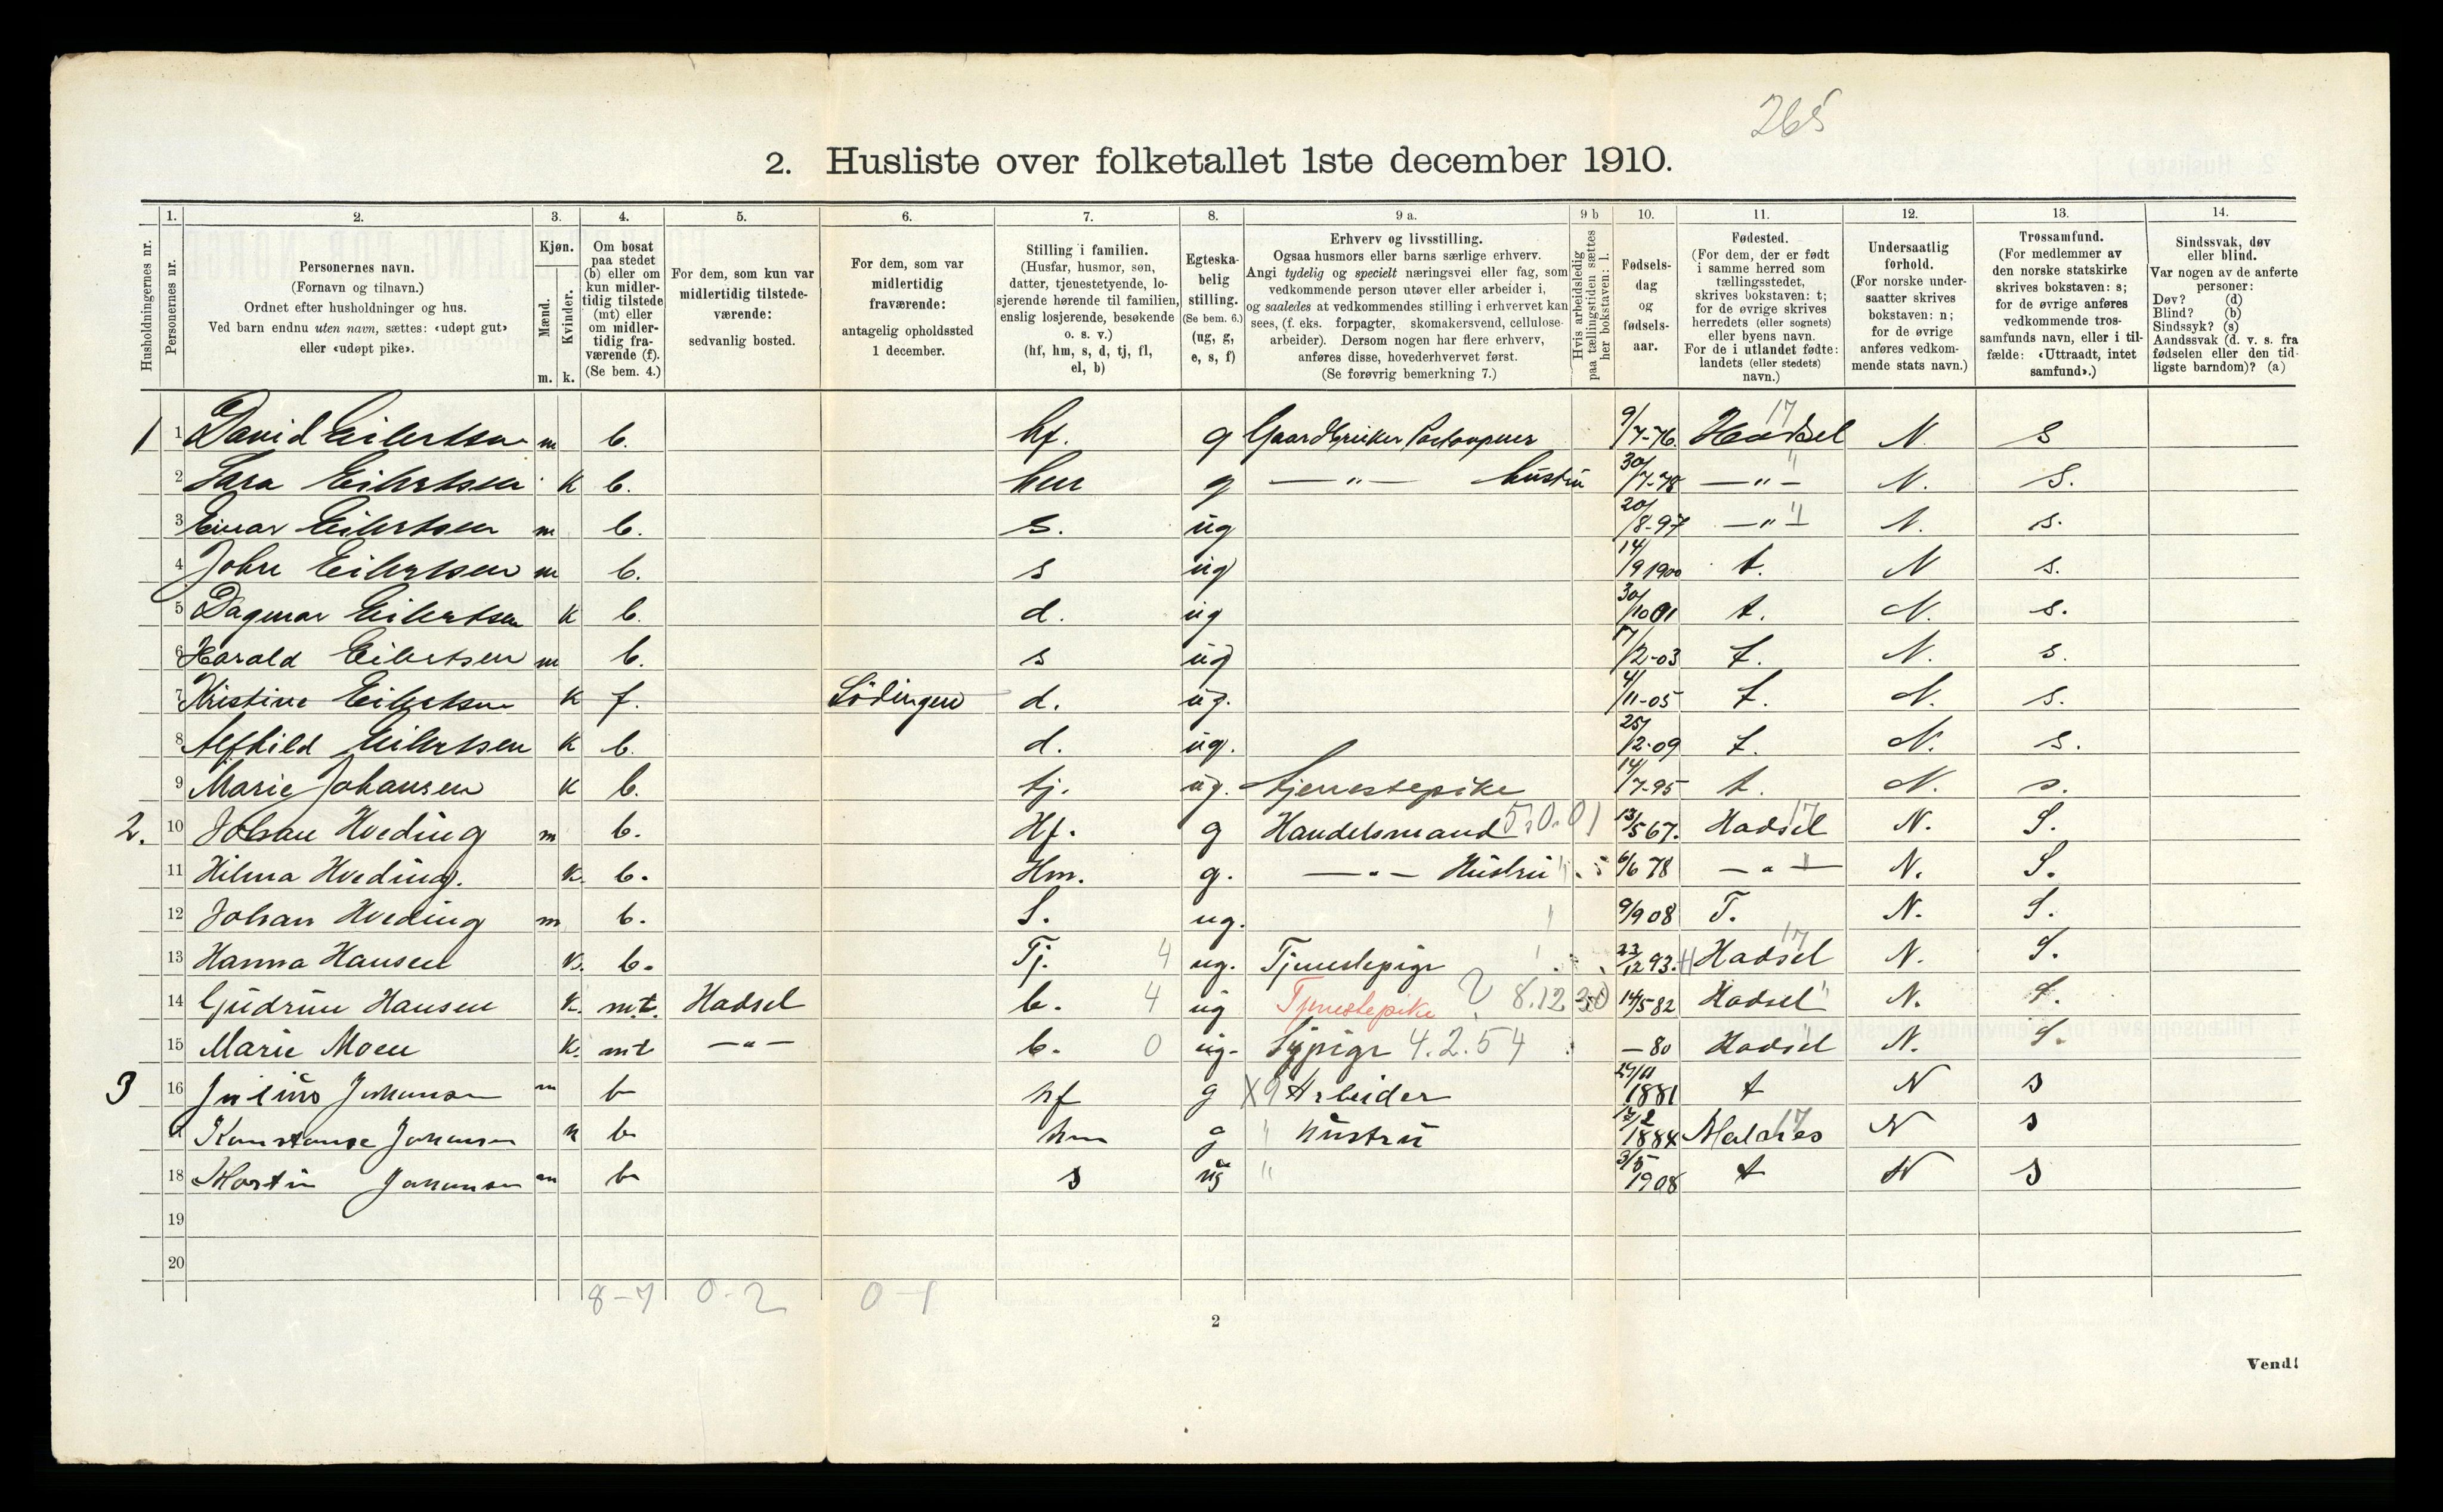 265
2. Husliste over folketallet 1ste december 1910.
Husholdningernes nr.
1. Personernes nr.
2. Personernes navn. (Fornavn og tilnavn.) Ordnet efter husholdninger og hus. Ved barn endnu uten navn, sættes: «udøpt gut» eller «udøpt pike».
3. Kjøn. Mænd. m. Kvinder. k.
4. Om bosat paa stedet (b) eller om kun midlertidig tilstede (mt) eller om midlertidig fraværende (f). (Se bem. 4.)
5. For dem, som kun var midlertidig tilstedeværende: sedvanlig bosted.
6. For dem, som var midlertidig fraværende: antagelig opholdssted 1 december.
7. Stilling i familien. (Husfar, husmor, søn, datter, tjenestetyende, losjerende hørende til familien, enslig losjerende, besøkende o. s. v.) (hf, hm, s, d, tj, fl, el, b)
8. Egteskabelig stilling. (Se bem. 6.) (ug, g, e, s, f)
9 a. Erhverv og livsstilling. Ogsaa husmors eller barns særlige erhverv. Angi tydelig og specielt næringsvei eller fag, som vedkommende person utøver eller arbeider i, og saaledes at vedkommendes stilling i erhvervet kan sees, (f. eks. forpagter, skomakersvend, cellulosearbeider). Dersom nogen har flere erhverv, anføres disse, hovederhvervet først. (Se forøvrig bemerkning 7.)
9 b Hvis arbeidsledig paa tællingstiden sættes her bokstaven: l.
10. Fødselsdag og fødselsaar.
11. Fødested. (For dem, der er født i samme herred som tællingsstedet, skrives bokstaven: t; for de øvrige skrives herredets (eller sognets) eller byens navn. For de i utlandet fødte: landets (eller stedets) navn.)
12. Undersaatlig forhold. (For norske undersaatter skrives bokstaven: n; for de øvrige anføres vedkommende stats navn.)
13. Trossamfund. (For medlemmer av den norske statskirke skrives bokstaven: s; for de øvrige anføres vedkommende trossamfunds navn, eller i tilfælde: «Uttraadt, intet samfund».)
14. Sindssvak, døv eller blind. Var nogen av de anførte personer: Døv? (d) Blind? (b) Sindssyk? (s) Aandssvak (d. v. s. fra fødselen eller den tidligste barndom)? (a)
1 1 David Eilertsen m b. hf. g Gaardbruker Postaapner 9/7-76. Hadsel 17 N. S
2 Sara Eilertsen K b. hm g —"— hustru 30/7-78 —"— " N. S.
3 Einar Eilertsen m b. s. ug 20/8-97 —"— " N. s.
4 John Eilertsen m b. s ug 14/9 1900 t. N s.
5 Dagmar Eilertsen K b. d. ug 30/10 01 t. N. s.
6 Harald Eilertsen m b. s ug 17/2-03 t. N. s.
7 Kristine Eilertsen K f. Lödingen d. ug. 4/11-05 t. N. s.
8 Alfhild Eilertsen K b. d. ug. 25/2-09 t. N. s.
9 Marie Johansen K b. tj. ug. tjenestepike 14/7-95 t. N. s.
2. 10 Johan Hveding m b. Hf. g Handelsmand 5.0.01 13/5 67. Hadsel 17 N. S.
11 Hilma Hveding. K. b. Hm. g. —"— Hustru " 6/6 78 —"— " N. S.
12 Johan Hveding m b. S. ug. " 9/9 08 T. N. S.
13 Hanna Hansen K. b. Tj. 4 ug. Tjenestepige 23/12 93. Hadsel 17 N. S.
14 Gudrun Hansen K. mt. Hadsel b. 4 ug Tjenestepike ? 8.12 14/5 82 Hadsel " N. S.
15 Marie Moen K. mt —"— b. 0 ug. Sypige 4.2.54 — 80 Hadsel " N. S.
3 16 Julius Johansen m b hf g X9 Arbeider 29/11 1881 t N s
17 Konstanse Johansen K b hm g " hustru 17/2 1884 Melanes 17 N s
18 Martin Johansen m b s ug " 3/5 1908 t N s
19
20
8-7 0-2 0-1
2
Vend!